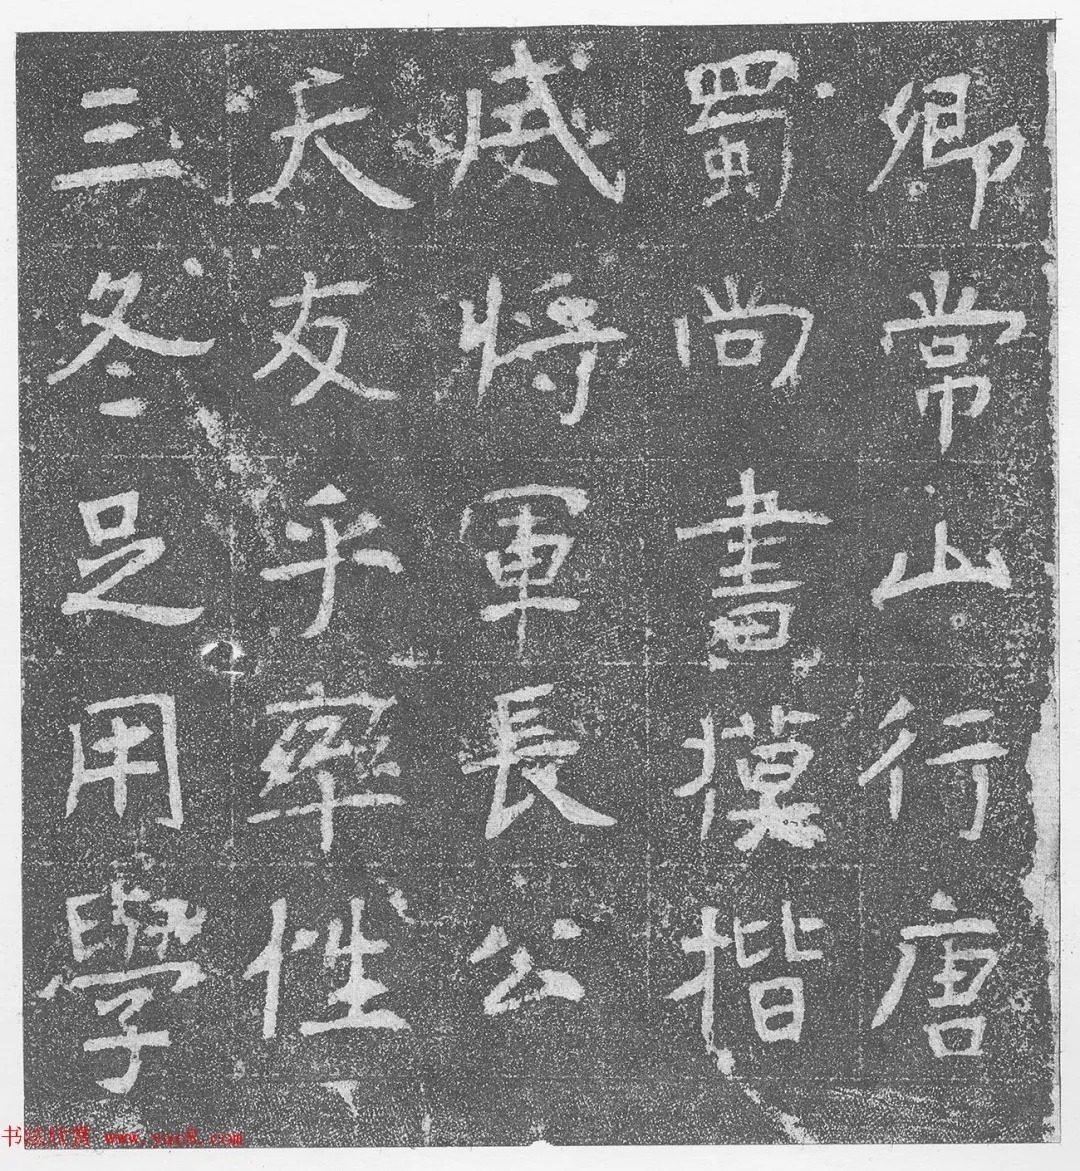 卿常山行唐
蜀尚書摸楷
威將軍長公
天友乎率性
三冬足用學
书法欣赏 www.yac8.com